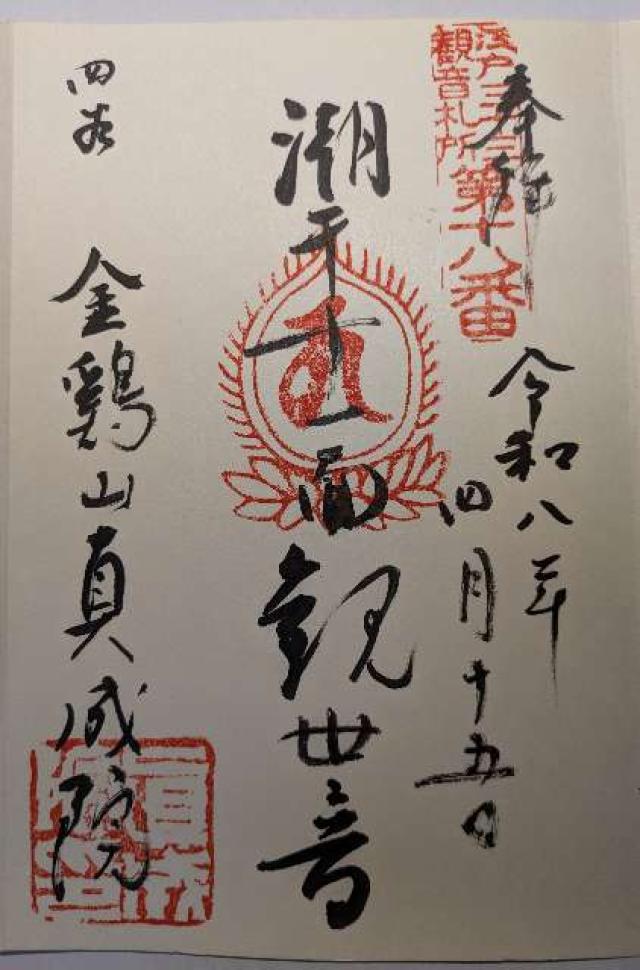 江戸三十三
観音札所
第十八番
奉拝
令和八年
四月十五日
潮干十一面観世音
四谷
金鶏山真成院